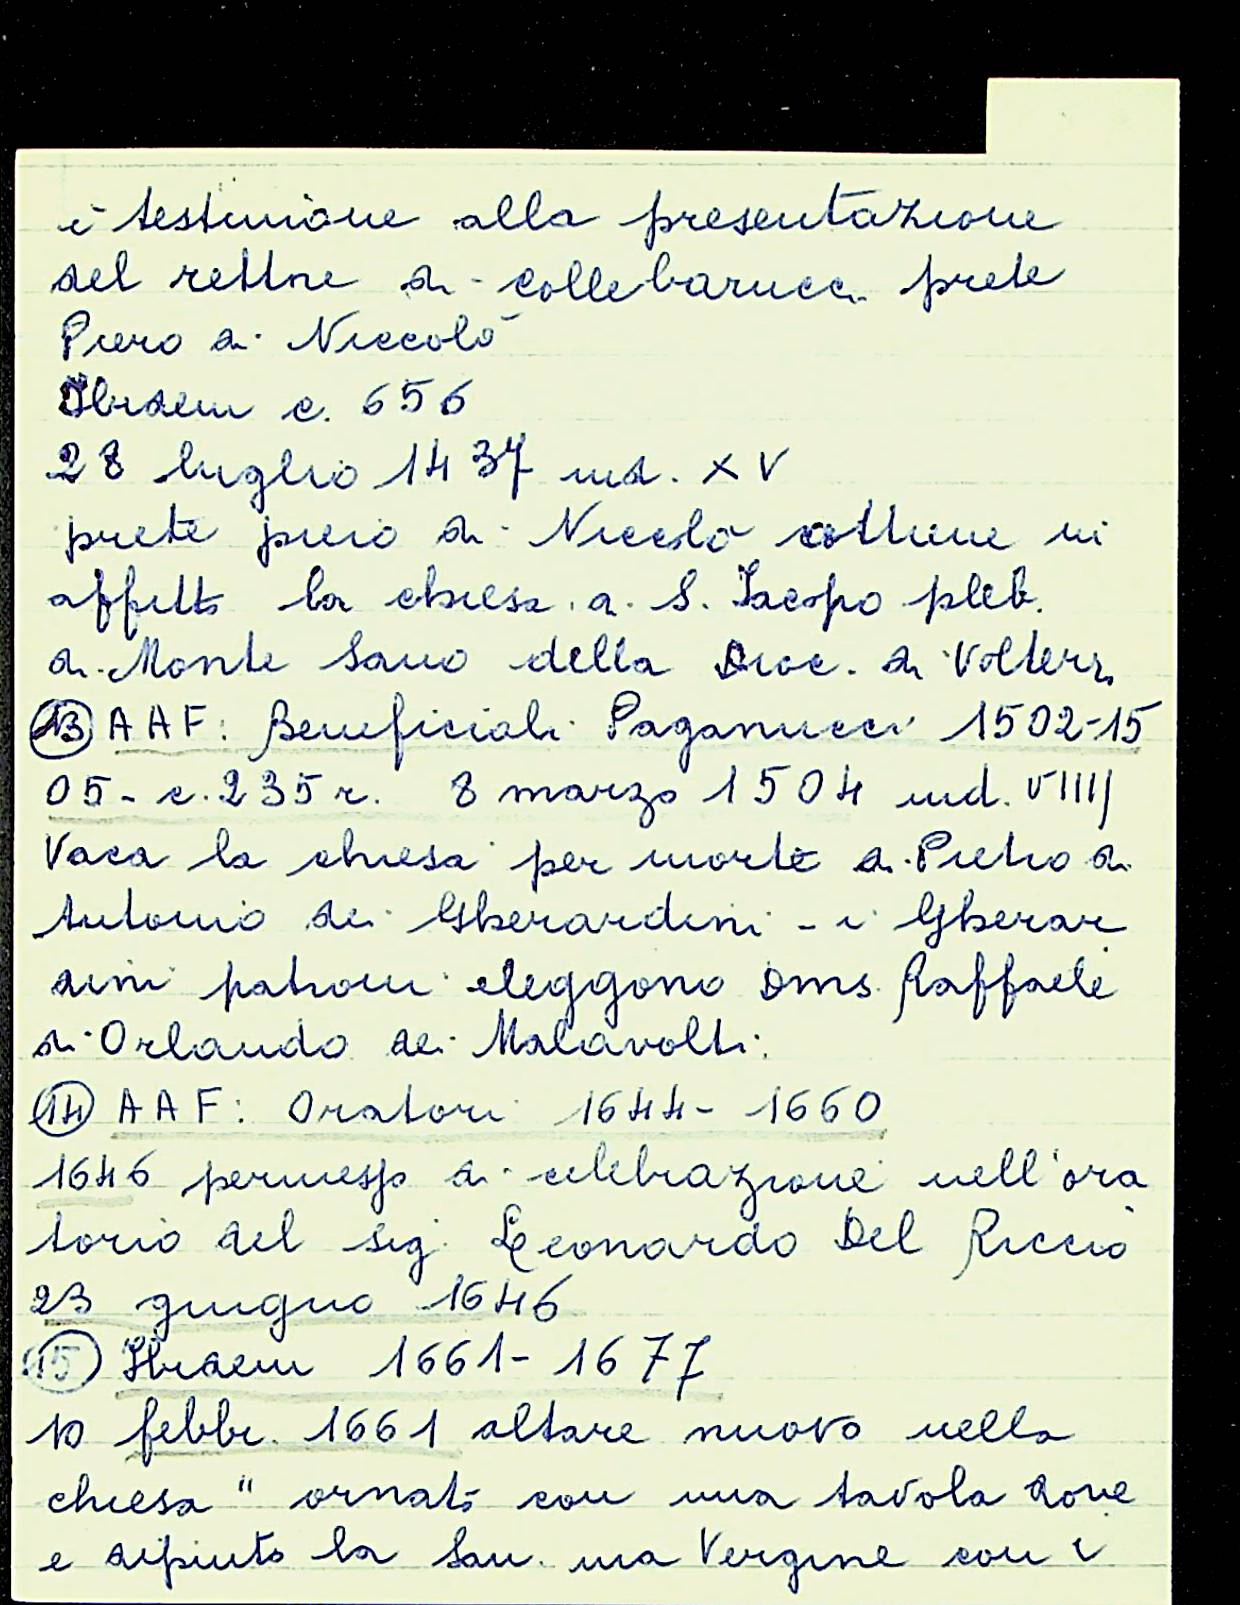 è testimone alla presentazione
del rettore di Collebarucci prete
Piero di Niccolò
Ibidem c. 656
28 luglio 1437 ind. XV
prete piero di Niccolò ottiene in
affitto la chiesa di S. Iacopo pleb.
di Monte Sano della Dioc. di Volterra
(13) AAF: Beneficiali Paganucci 1502-15
05- c. 235 r. 8 marzo 1504 ind. VIIII
Vaca la chiesa per morte di Pietro di
Antonio dei Gherardini - i Gherar
dini patroni eleggono Dms. Raffaele
di Orlando dei Malavolti.
(14) AAF: Oratori 1644-1660
1646 permesso di celebrazione nell'ora
torio del sig. Leonardo Del Riccio
23 giugno 1646
(15) Ibidem 1661-1677
10 febbr. 1661 altare nuovo nella
chiesa " ornato con una tavola dove
e dipinto la San.ma Vergine con i